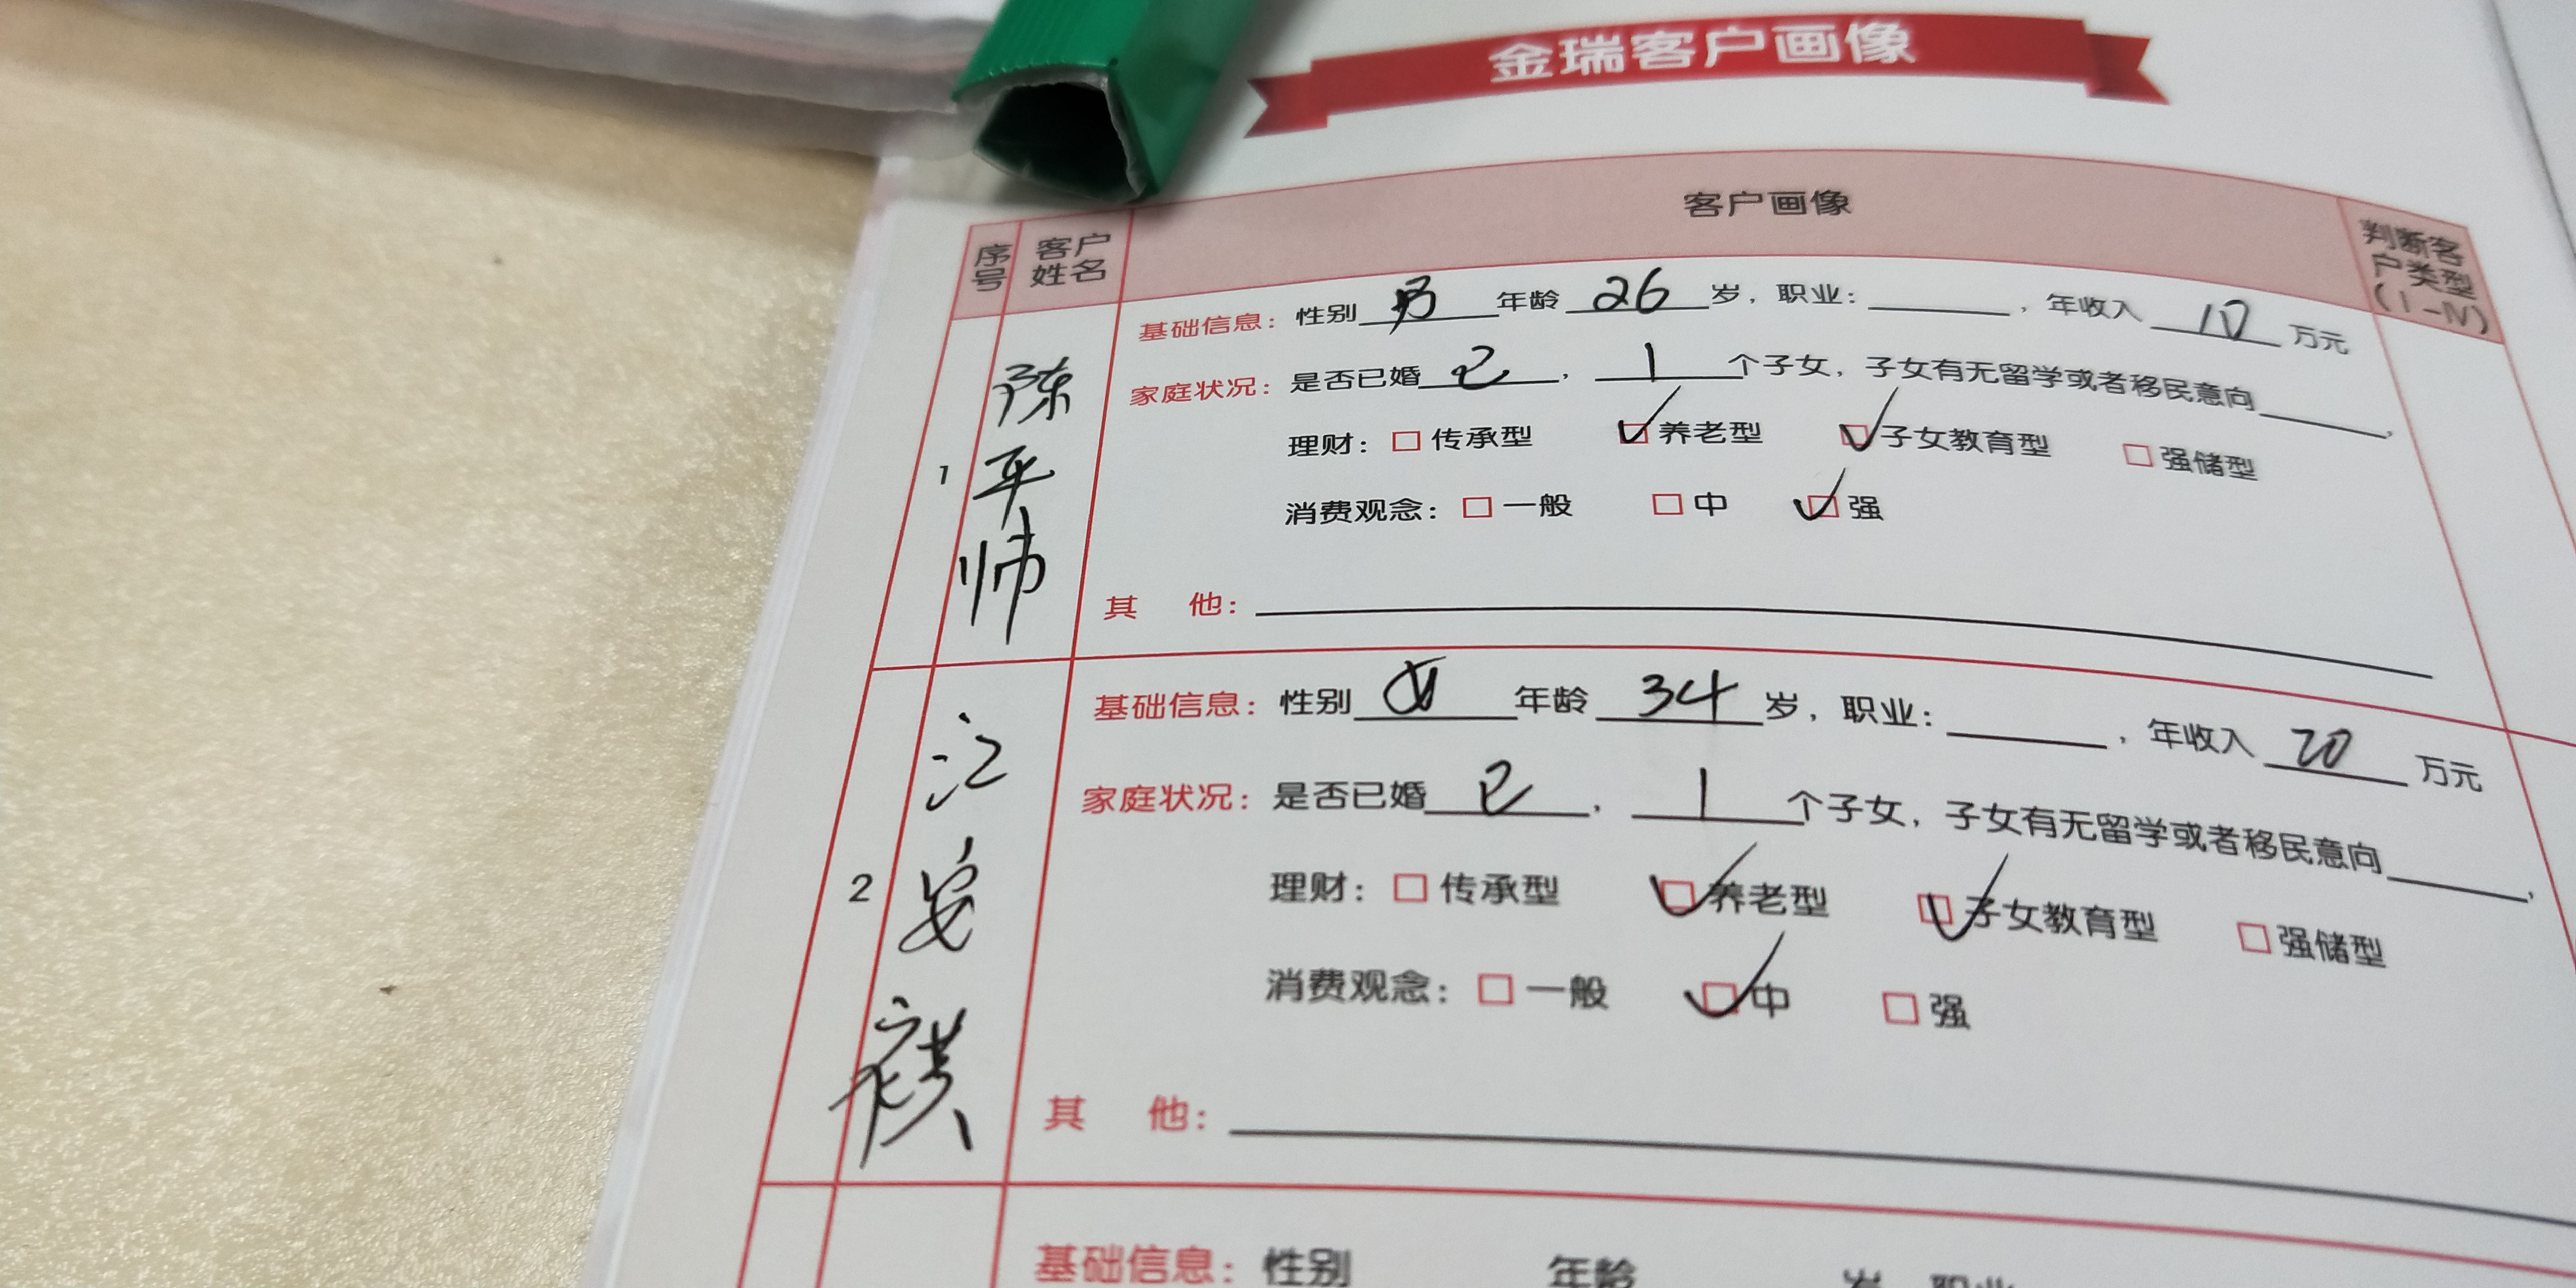 金瑞客户画像
序号 客户姓名 客户画像 判断客户类型(Ⅰ-Ⅳ)
1 陈平帅
基础信息：性别 男 年龄 26 岁，职业： ，年收入 10 万元
家庭状况：是否已婚 已 ， 1 个子女，子女有无留学或者移民意向 ，
理财：□传承型 ☑养老型 ☑子女教育型 □强储型
消费观念：□一般 □中 ☑强
其 他：
2 江安祺
基础信息：性别 女 年龄 34 岁，职业： ，年收入 20 万元
家庭状况：是否已婚 已 ， 1 个子女，子女有无留学或者移民意向 ，
理财：□传承型 ☑养老型 ☑子女教育型 □强储型
消费观念：□一般 ☑中 □强
其 他：
基础信息：性别 年龄 岁，职业